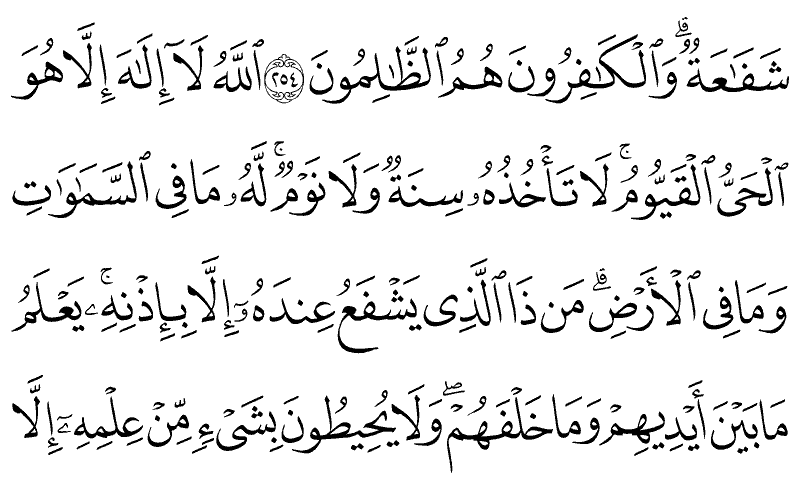 شَفَـٰعَةٌۭ ۗ وَٱلْكَـٰفِرُونَ هُمُ ٱلظَّـٰلِمُونَ ٢٥٤ ٱللَّهُ لَآ إِلَـٰهَ إِلَّا هُوَ
ٱلْحَىُّ ٱلْقَيُّومُ ۚ لَا تَأْخُذُهُۥ سِنَةٌۭ وَلَا نَوْمٌۭ ۚ لَّهُۥ مَا فِى ٱلسَّمَـٰوَٰتِ
وَمَا فِى ٱلْأَرْضِ ۗ مَن ذَا ٱلَّذِى يَشْفَعُ عِندَهُۥٓ إِلَّا بِإِذْنِهِۦ ۚ يَعْلَمُ
مَا بَيْنَ أَيْدِيهِمْ وَمَا خَلْفَهُمْ ۖ وَلَا يُحِيطُونَ بِشَىْءٍۢ مِّنْ عِلْمِهِۦٓ إِلَّا